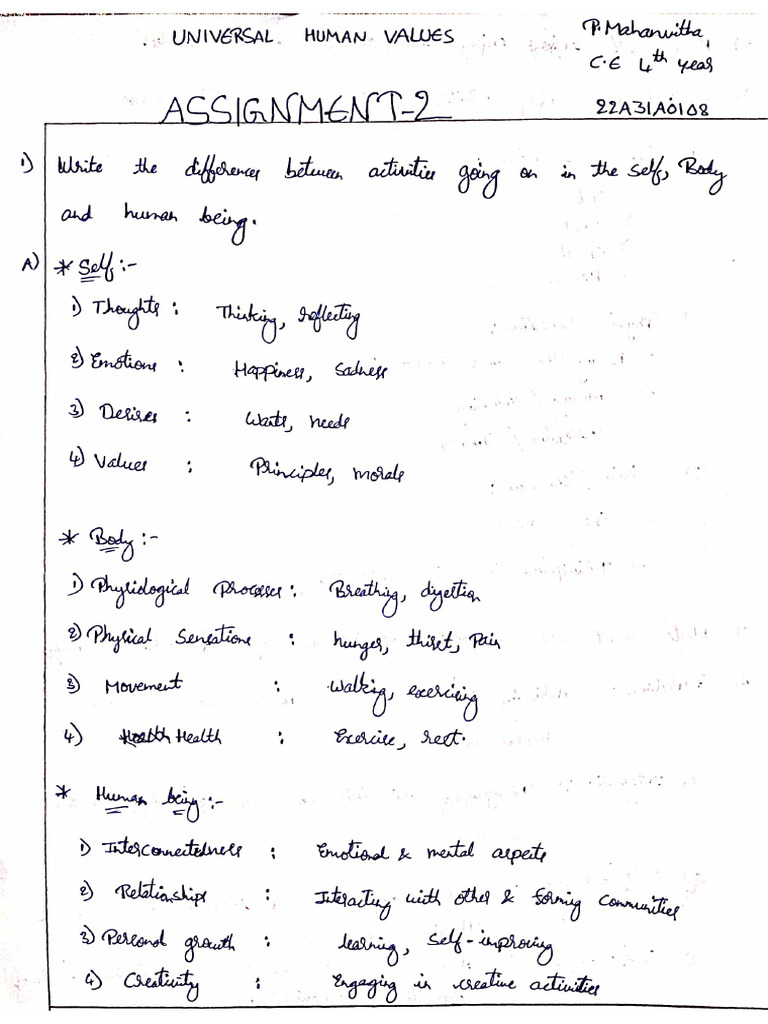 UNIVERSAL HUMAN VALUES
P. Maharwitha,
C.E 4th year
22A31A0108
ASSIGNMENT-2
1) Write the differences between activities going on in the self, Body
and human being.
A) * Self :-
1) Thoughts : Thinking, reflecting
2) Emotions : Happiness, Sadness
3) Desires : Wants, needs
4) Values : Principles, morals
* Body :-
1) Physiological Processes : Breathing, digestion
2) Physical Sensations : hunger, thirst, Pain
3) Movement : Walking, exercising
4) Health : Exercise, rest.
* Human being :-
1) Interconnectedness : Emotional & mental aspects
2) Relationships : Interacting with other & forming communities
3) Personal growth : learning, self-improving
4) Creativity : Engaging in creative activities